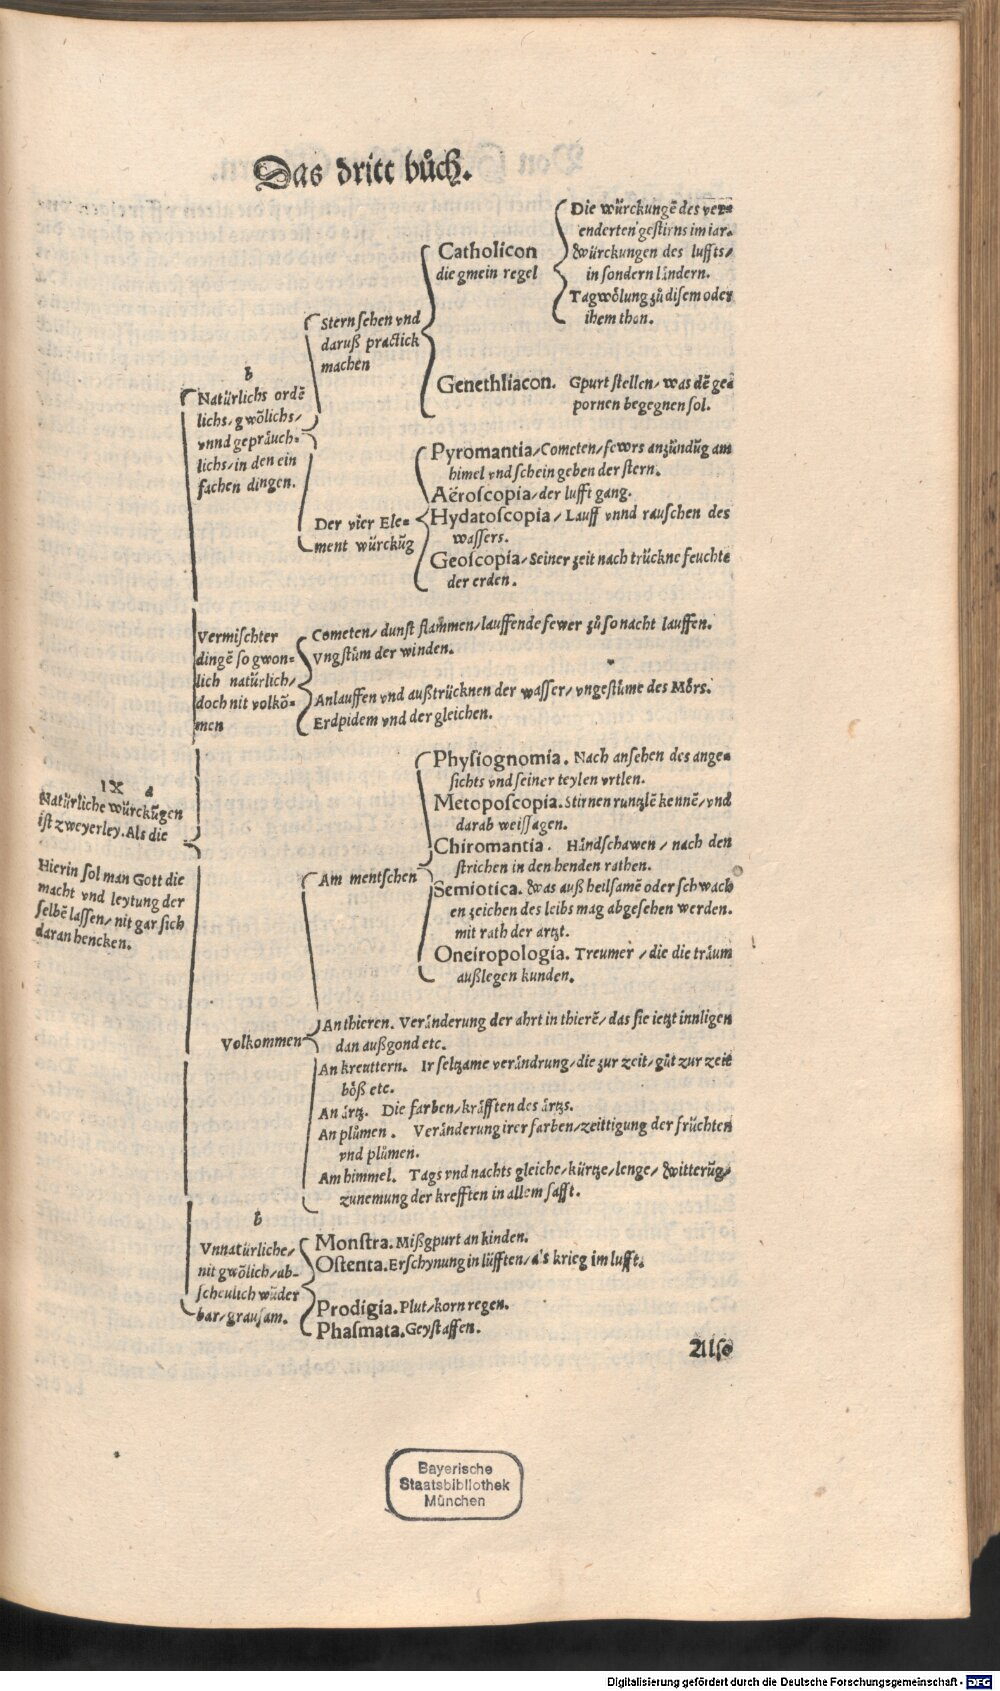 Das dritt bůch.
Die würckungē des ver=
enderten gestirns im iar.
würckungen des luffts/
in sondern lāndern.
Tagwőlung zů disem oder
ihem thon.
Catholicon
die gmein regel
Stern sehen vnd
daruß practick
machen
Genethliacon. Gpurt stellen/ was dē ge=
pornen begegnen sol.
b
Natürlichs ordē
lichs/ gwőlichs/
vnnd gepräuch=
lichs/ in den ein
fachen dingen.
Pyromantia/ Cometen/ fewrs anzündūg am
himel vnd schein geben der stern.
Aëroscopia/ der lufft gang.
Hydatoscopia/ Lauff vnnd rauschen des
wassers.
Geoscopia/ Seiner zeit nach trückne feuchte
der erden.
Der vier Ele=
ment würckūg
Vermischter
dingē so gwon=
lich natürlich/
doch nit volkō=
men
Cometen/ dunst flammen/ lauffende fewer zů so nacht lauffen.
Vngstům der winden.
Anlauffen vnd außtrücknen der wasser/ vngestüme des Mőrs.
Erdpidem vnd der gleichen.
IX a
Natürliche würckūgen
ist zweyerley. Als die
Hierin sol man Gott die
macht vnd leytung der
selbē lassen/ nit gar sich
daran hencken.
Physiognomia. Nach ansehen des ange=
sichts vnd seiner teylen vrtlen.
Metoposcopia. Stirnen runtzlē kennē/ vnd
darab weissagen.
Chiromantia. Hāndschawen/ nach den
strichen in den henden rathen.
Semiotica. was auß heilsamē oder schwach
en zeichen des leibs mag abgesehen werden.
mit rath der artzt.
Oneiropologia. Treumer/ die die träum
außlegen kunden.
Am mentschen
Volkommen
An thieren. Veränderung der ahrt in thierē/ das sie ietzt innligen
dan außgond etc.
An kreuttern. Ir seltzame verändrung/ die zur zeit/ gůt zur zeit
bőß etc.
An ärtz. Die farben/ kräfften des ärtzs.
An plůmen. Veränderung irer farben/ zeittigung der früchten
vnd plůmen.
Am himmel. Tags vnd nachts gleiche/ kürtze/ lenge/ witterūg/
zunemung der krefften in allem safft.
b
Vnnatürliche/
nit gwőlich/ ab=
scheulich wūder
bar/ grausam.
Monstra. Mißgpurt an kinden.
Ostenta. Erschynung in lüfften/ als krieg im lufft.
Prodigia. Plut/ korn regen.
Phasmata. Geyst affen.
Also
Bayerische
Staatsbibliothek
München
Digitalisierung gefördert durch die Deutsche Forschungsgemeinschaft - DFG